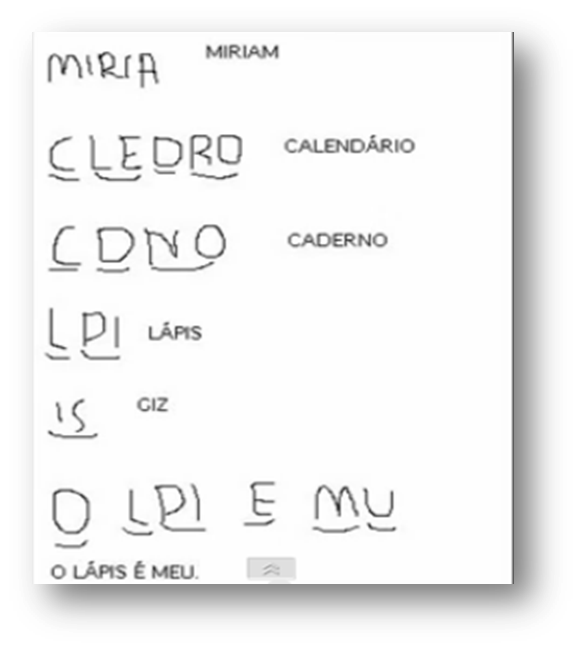 MIRIA MIRIAM
CLEDRO CALENDÁRIO
CDNO CADERNO
LPI LÁPIS
IS GIZ
O LPI E MU
O LÁPIS É MEU.